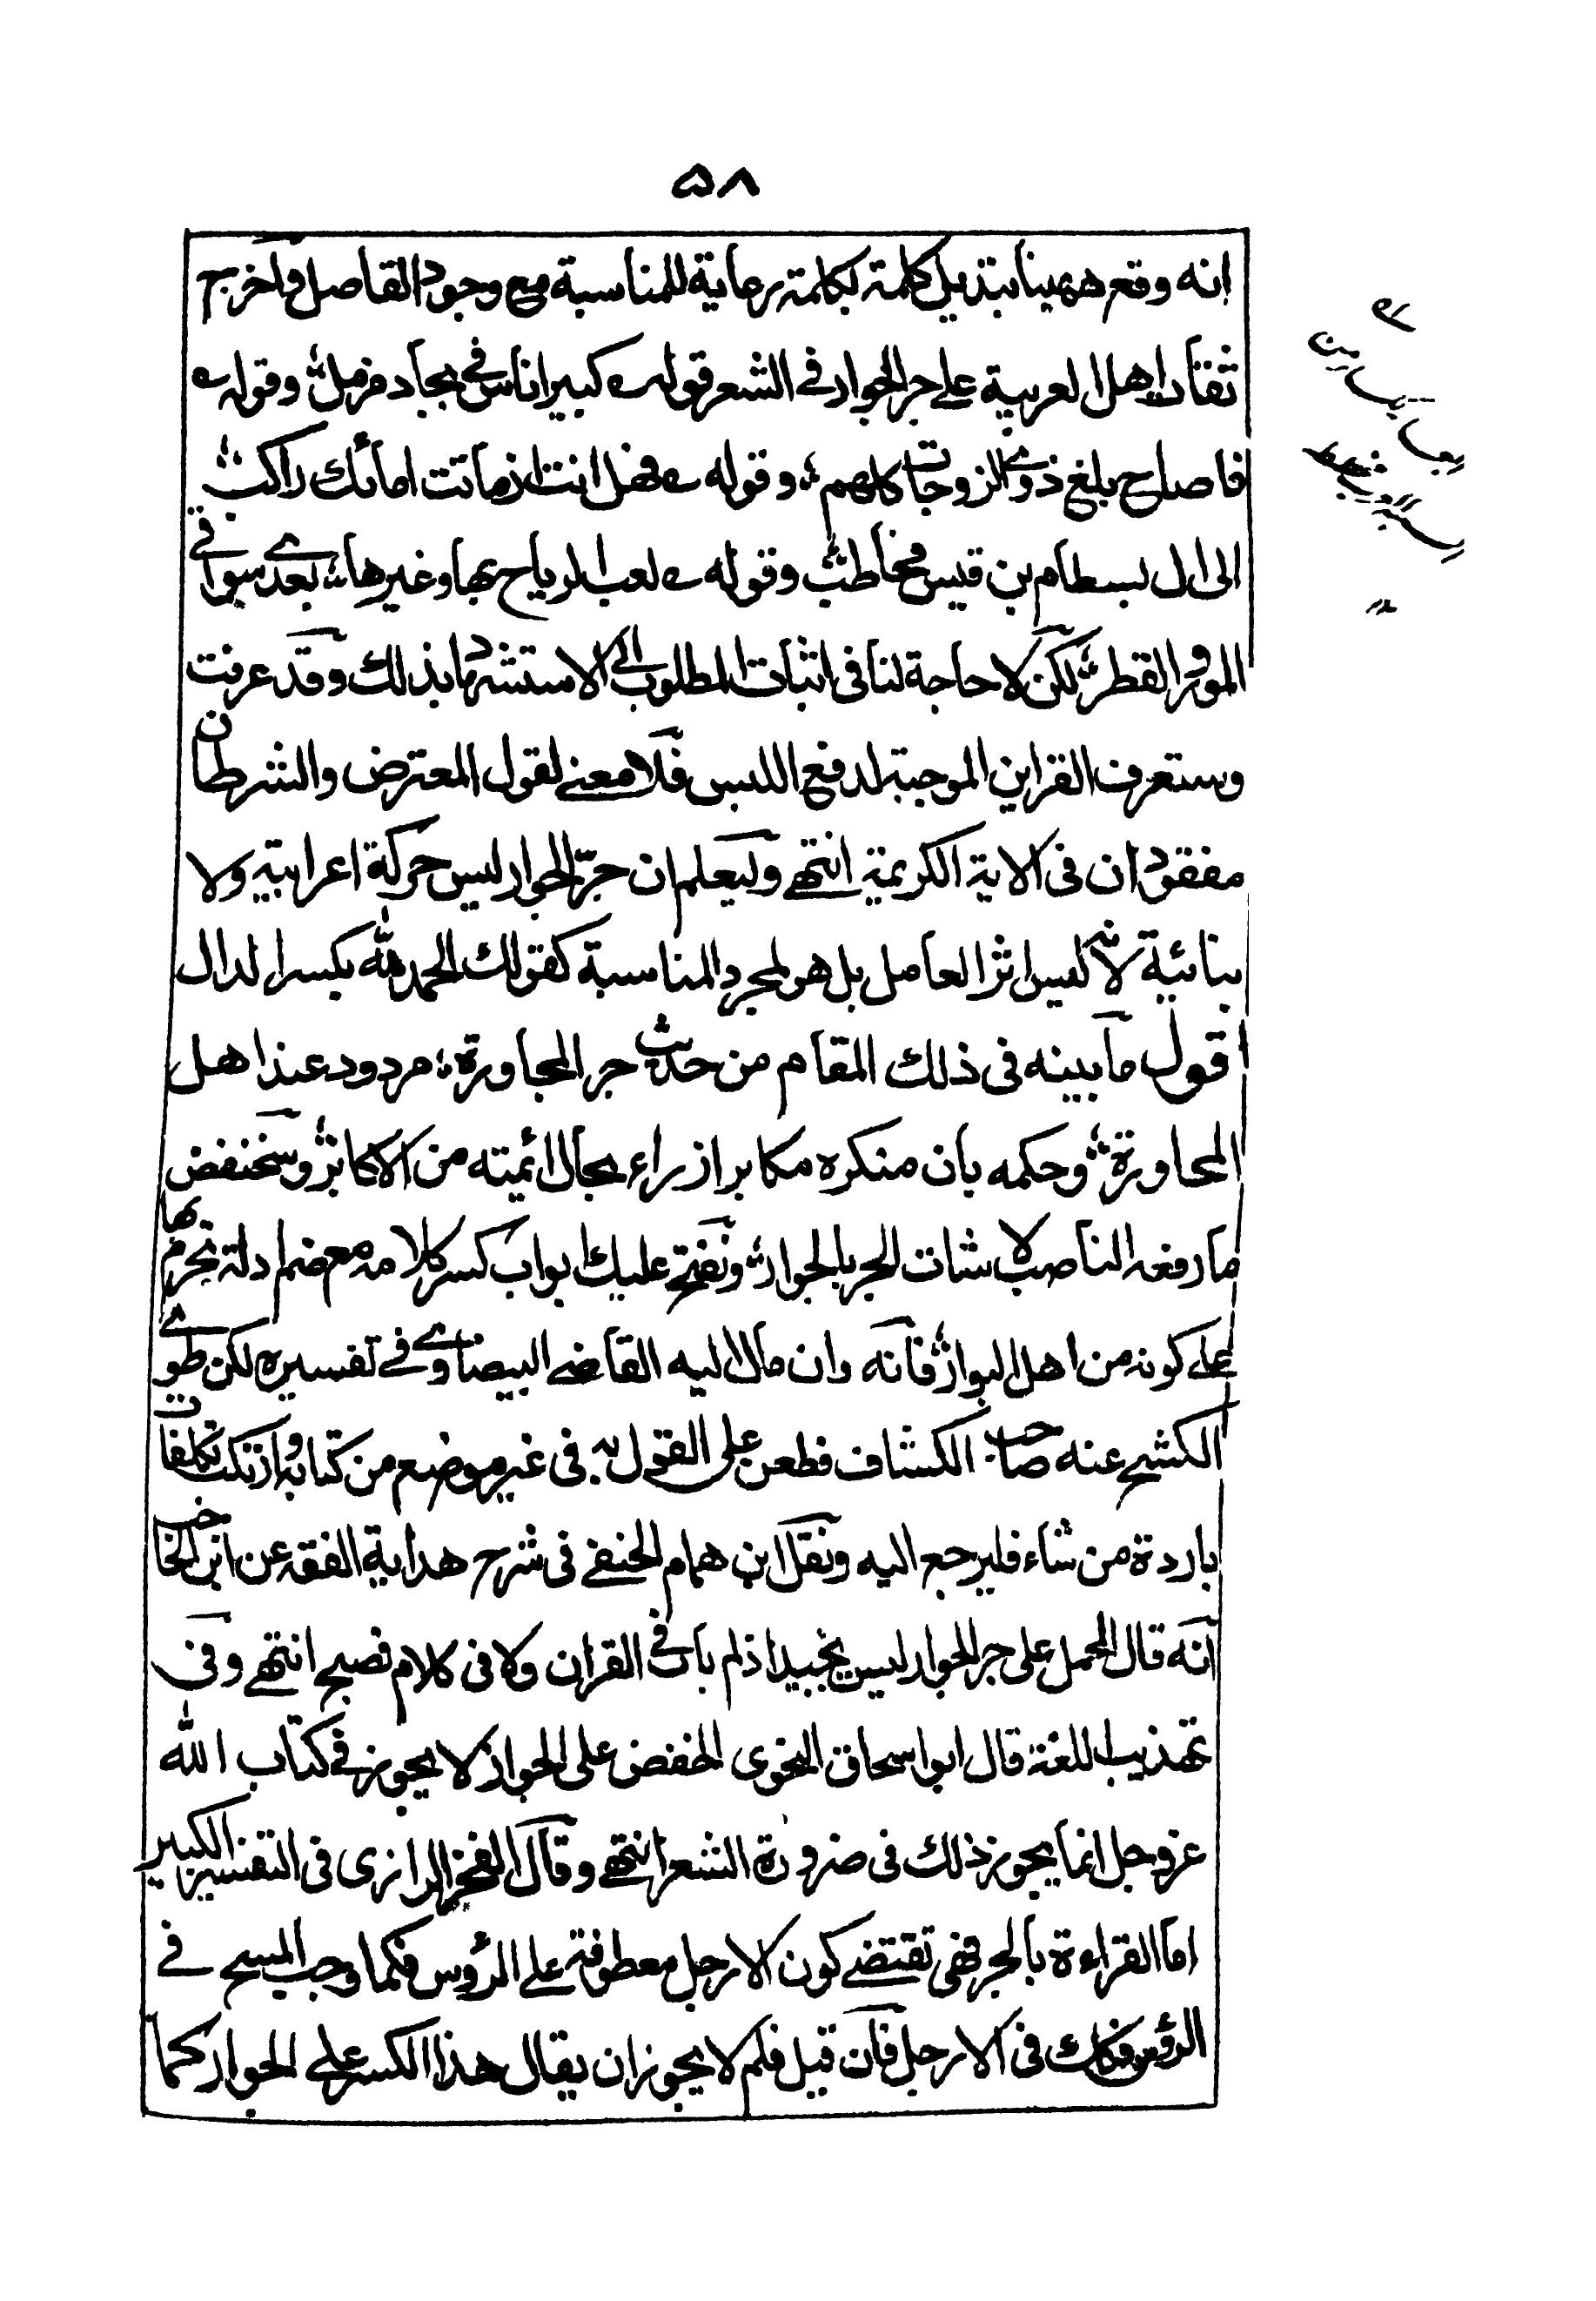 ۵۸
انه وقع ههينا تبديل كلمة بكلمة رعاية للمناسبة مع وجود الفاصل واخرج
ثقات اهل العربية على جر الجوار فى الشعر قوله كبير اناس فى بجاد مزمل وقوله
فاصاح بلغ ذوى الزوجات كلهم وقوله فهل انت ان ماتت اماتك راكب
الى ال بسطام بن قيس مخاطب وقوله لعب الرياح بها وغيرها بعدى سوافى
المور والقطر لكن لا حاجة لنا فى اثبات المطلوب الى الاستشهاد بذلك وقد عرفت
وستعرف القراين الموجبة لدفع اللبس فلا معنى لقول المعترض والشرطان
مفقودان فى الاية الكريمة انتهى وليعلم ان جرّ الجوار ليس حركة اعرابية ولا
بنائية لانه ليس اثر العامل بل هو لمجرد المناسبة كقولك الحمد لله بكسر الدال
اقول ما بينه فى ذلك المقام من حديث جر المجاورة مردود عند اهل
المحاورة وحكمه بان منكره مكابر ازراء بحال ائمته من الاكابر وسنخفض
ما رفعه الناصب لاثبات الجر بالجوار ونفتح عليك ابواب كسر كلامه مع ضم ادلة تجرم بها
على كونه من اهل البوار فانه وان مال اليه القاضى البيضاوى فى تفسيره لكن طوى
الكشح عنه صاحب الكشاف فطعن على القول به فى غير موضع من كتابه وارتكب تكلفات
باردة من شاء فليرجع اليه ونقل ابن همام الحنفى فى شرح هداية الفقه عن ابن الحاجب
انه قال الحمل على جر الجوار ليس بجيد اذ لم يات فى القران ولا فى كلام فصيح انتهى وفى
تهذيب اللغة قال ابو اسحاق النحوى الخفض على الجوار لا يجوز فى كتاب الله
عز وجل انما يجوز ذلك فى ضرورة الشعر انتهى وقال الفخر الرازى فى التفسير الكبير
اما القراءة بالجر فهى تقتضى كون الارجل معطوفة على الرؤس فكما وجب المسح فى
الرؤس فكذلك فى الارجل فان قيل فلم لا يجوز ان يقال هذا الكسر على الجوار كما